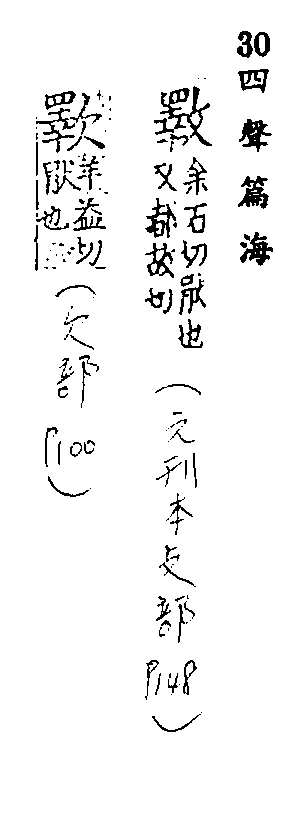 30四聲篇海
斁余石切猒也又都故切(元刊本攴部P148)
羊益切猒也(欠部P100)